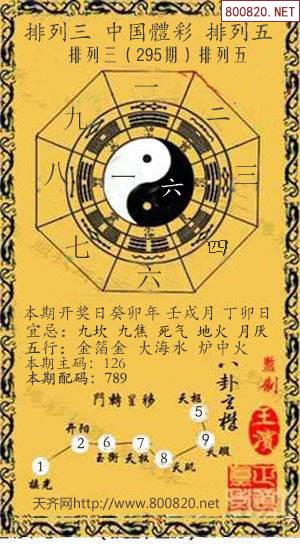 800820.NET
排列三 中国體彩 排列五
排列三（295期）排列五
一
九 二
八 一 六 三
七 四
六
本期开奖日癸卯年 壬戌月 丁卯日
宜忌：九坎 九焦 死气 地火 月厌
五行：金箔金 大海水 炉中火
本期主码：126
本期配码：789
監制
八卦玄機
王濱
門轉星移
天枢
5
开阳
2 6 7 9
玉衡 天权 8 天璇
1 天玑
摇光
天齐网http://www.800820.net